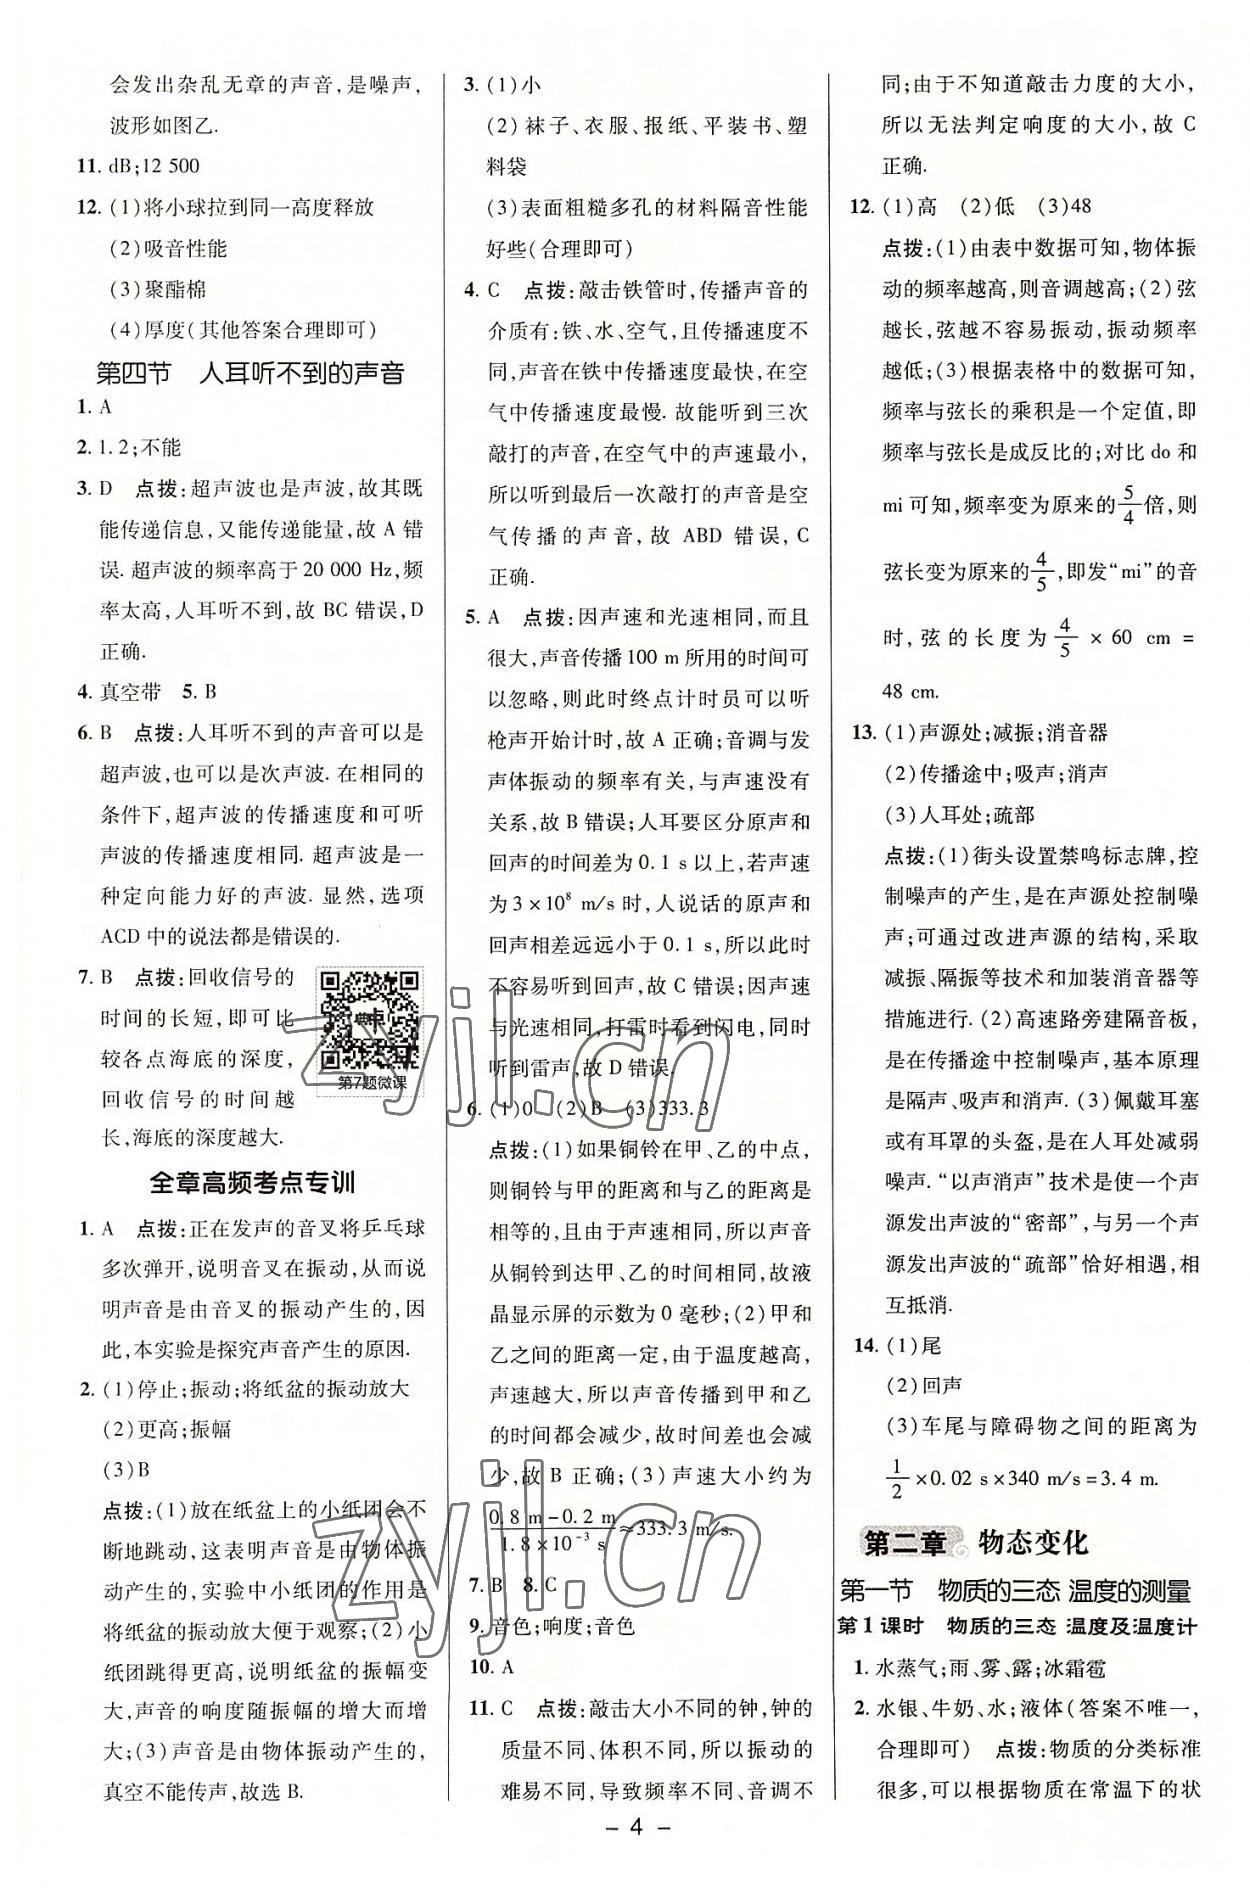 会发出杂乱无章的声音,是噪声,
波形如图乙.
11. dB;12 500
12. (1)将小球拉到同一高度释放
(2)吸音性能
(3)聚酯棉
(4)厚度(其他答案合理即可)
第四节 人耳听不到的声音
1. A
2. 1.2;不能
3. D 点拨:超声波也是声波,故其既
能传递信息,又能传递能量,故 A 错
误. 超声波的频率高于 20 000 Hz,频
率太高,人耳听不到,故 BC 错误,D
正确.
4. 真空带 5. B
6. B 点拨:人耳听不到的声音可以是
超声波,也可以是次声波. 在相同的
条件下,超声波的传播速度和可听
声波的传播速度相同. 超声波是一
种定向能力好的声波. 显然,选项
ACD 中的说法都是错误的.
7. B 点拨:回收信号的
时间的长短,即可比
较各点海底的深度,
回收信号的时间越
长,海底的深度越大.
典中
第7题微课
全章高频考点专训
1. A 点拨:正在发声的音叉将乒乓球
多次弹开,说明音叉在振动,从而说
明声音是由音叉的振动产生的,因
此,本实验是探究声音产生的原因.
2. (1)停止;振动;将纸盆的振动放大
(2)更高;振幅
(3)B
点拨:(1)放在纸盆上的小纸团会不
断地跳动,这表明声音是由物体振
动产生的,实验中小纸团的作用是
将纸盆的振动放大便于观察;(2)小
纸团跳得更高,说明纸盆的振幅变
大,声音的响度随振幅的增大而增
大;(3)声音是由物体振动产生的,
真空不能传声,故选 B.
3. (1)小
(2)袜子、衣服、报纸、平装书、塑
料袋
(3)表面粗糙多孔的材料隔音性能
好些(合理即可)
4. C 点拨:敲击铁管时,传播声音的
介质有:铁、水、空气,且传播速度不
同,声音在铁中传播速度最快,在空
气中传播速度最慢. 故能听到三次
敲打的声音,在空气中的声速最小,
所以听到最后一次敲打的声音是空
气传播的声音,故 ABD 错误,C
正确.
5. A 点拨:因声速和光速相同,而且
很大,声音传播 100 m 所用的时间可
以忽略,则此时终点计时员可以听
枪声开始计时,故 A 正确;音调与发
声体振动的频率有关,与声速没有
关系,故 B 错误;人耳要区分原声和
回声的时间差为 0.1 s 以上,若声速
为 3×10⁸ m/s 时,人说话的原声和
回声相差远远小于 0.1 s,所以此时
不容易听到回声,故 C 错误;因声速
与光速相同,打雷时看到闪电,同时
听到雷声,故 D 错误.
6. (1)0 (2)B (3)333.3
点拨:(1)如果铜铃在甲、乙的中点,
则铜铃与甲的距离和与乙的距离是
相等的,且由于声速相同,所以声音
从铜铃到达甲、乙的时间相同,故液
晶显示屏的示数为 0 毫秒;(2)甲和
乙之间的距离一定,由于温度越高,
声速越大,所以声音传播到甲和乙
的时间都会减少,故时间差也会减
少,故 B 正确;(3)声速大小约为
0.8 m-0.2 m/1.8×10⁻³ s≈333.3 m/s.
7. B 8. C
9. 音色;响度;音色
10. A
11. C 点拨:敲击大小不同的钟,钟的
质量不同、体积不同,所以振动的
难易不同,导致频率不同、音调不
同;由于不知道敲击力度的大小,
所以无法判定响度的大小,故 C
正确.
12. (1)高 (2)低 (3)48
点拨:(1)由表中数据可知,物体振
动的频率越高,则音调越高;(2)弦
越长,弦越不容易振动,振动频率
越低;(3)根据表格中的数据可知,
频率与弦长的乘积是一个定值,即
频率与弦长是成反比的;对比 do 和
mi 可知,频率变为原来的5/4倍,则
弦长变为原来的4/5,即发“mi”的音
时,弦的长度为4/5×60 cm=
48 cm.
13. (1)声源处;减振;消音器
(2)传播途中;吸声;消声
(3)人耳处;疏部
点拨:(1)街头设置禁鸣标志牌,控
制噪声的产生,是在声源处控制噪
声;可通过改进声源的结构,采取
减振、隔振等技术和加装消音器等
措施进行. (2)高速路旁建隔音板,
是在传播途中控制噪声,基本原理
是隔声、吸声和消声. (3)佩戴耳塞
或有耳罩的头盔,是在人耳处减弱
噪声. “以声消声”技术是使一个声
源发出声波的“密部”,与另一个声
源发出声波的“疏部”恰好相遇,相
互抵消.
14. (1)尾
(2)回声
(3)车尾与障碍物之间的距离为
1/2×0.02 s×340 m/s=3.4 m.
第二章 物态变化
第一节 物质的三态 温度的测量
第 1 课时 物质的三态 温度及温度计
1. 水蒸气;雨、雾、露;冰霜雹
2. 水银、牛奶、水;液体(答案不唯一,
合理即可) 点拨:物质的分类标准
很多,可以根据物质在常温下的状
- 4 -
zyjl.cn
zyjl.cn